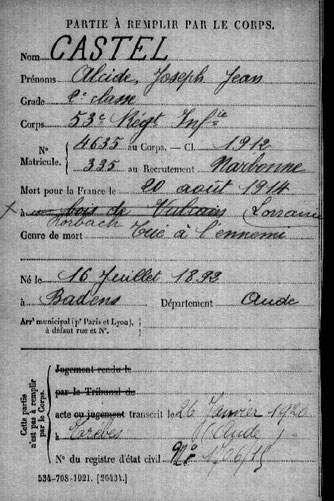 PARTIE À REMPLIR PAR LE CORPS.
Nom CASTEL
Prénoms Alcide, Joseph Jean
Grade 2e classe
Corps 53e Regt Infie
No Matricule. 4635 au Corps. — Cl. 1912
335 au Recrutement Narbonne
Mort pour la France le 20 août 1914
à bois de Vulcain (Lorraine
Rorbach
Genre de mort Tué à l'ennemi
Né le 16 Juillet 1893
à Badens Département Aude
Arrt municipal (pr Paris et Lyon),
à défaut rue et No.
Cette partie
n'est pas à remplir
par le Corps.
Jugement rendu le
par le Tribunal de
acte ou jugement transcrit le 26 Janvier 1920
à Trèbes (Aude)
No du registre d'état civil
534-708-1921. [26434.]